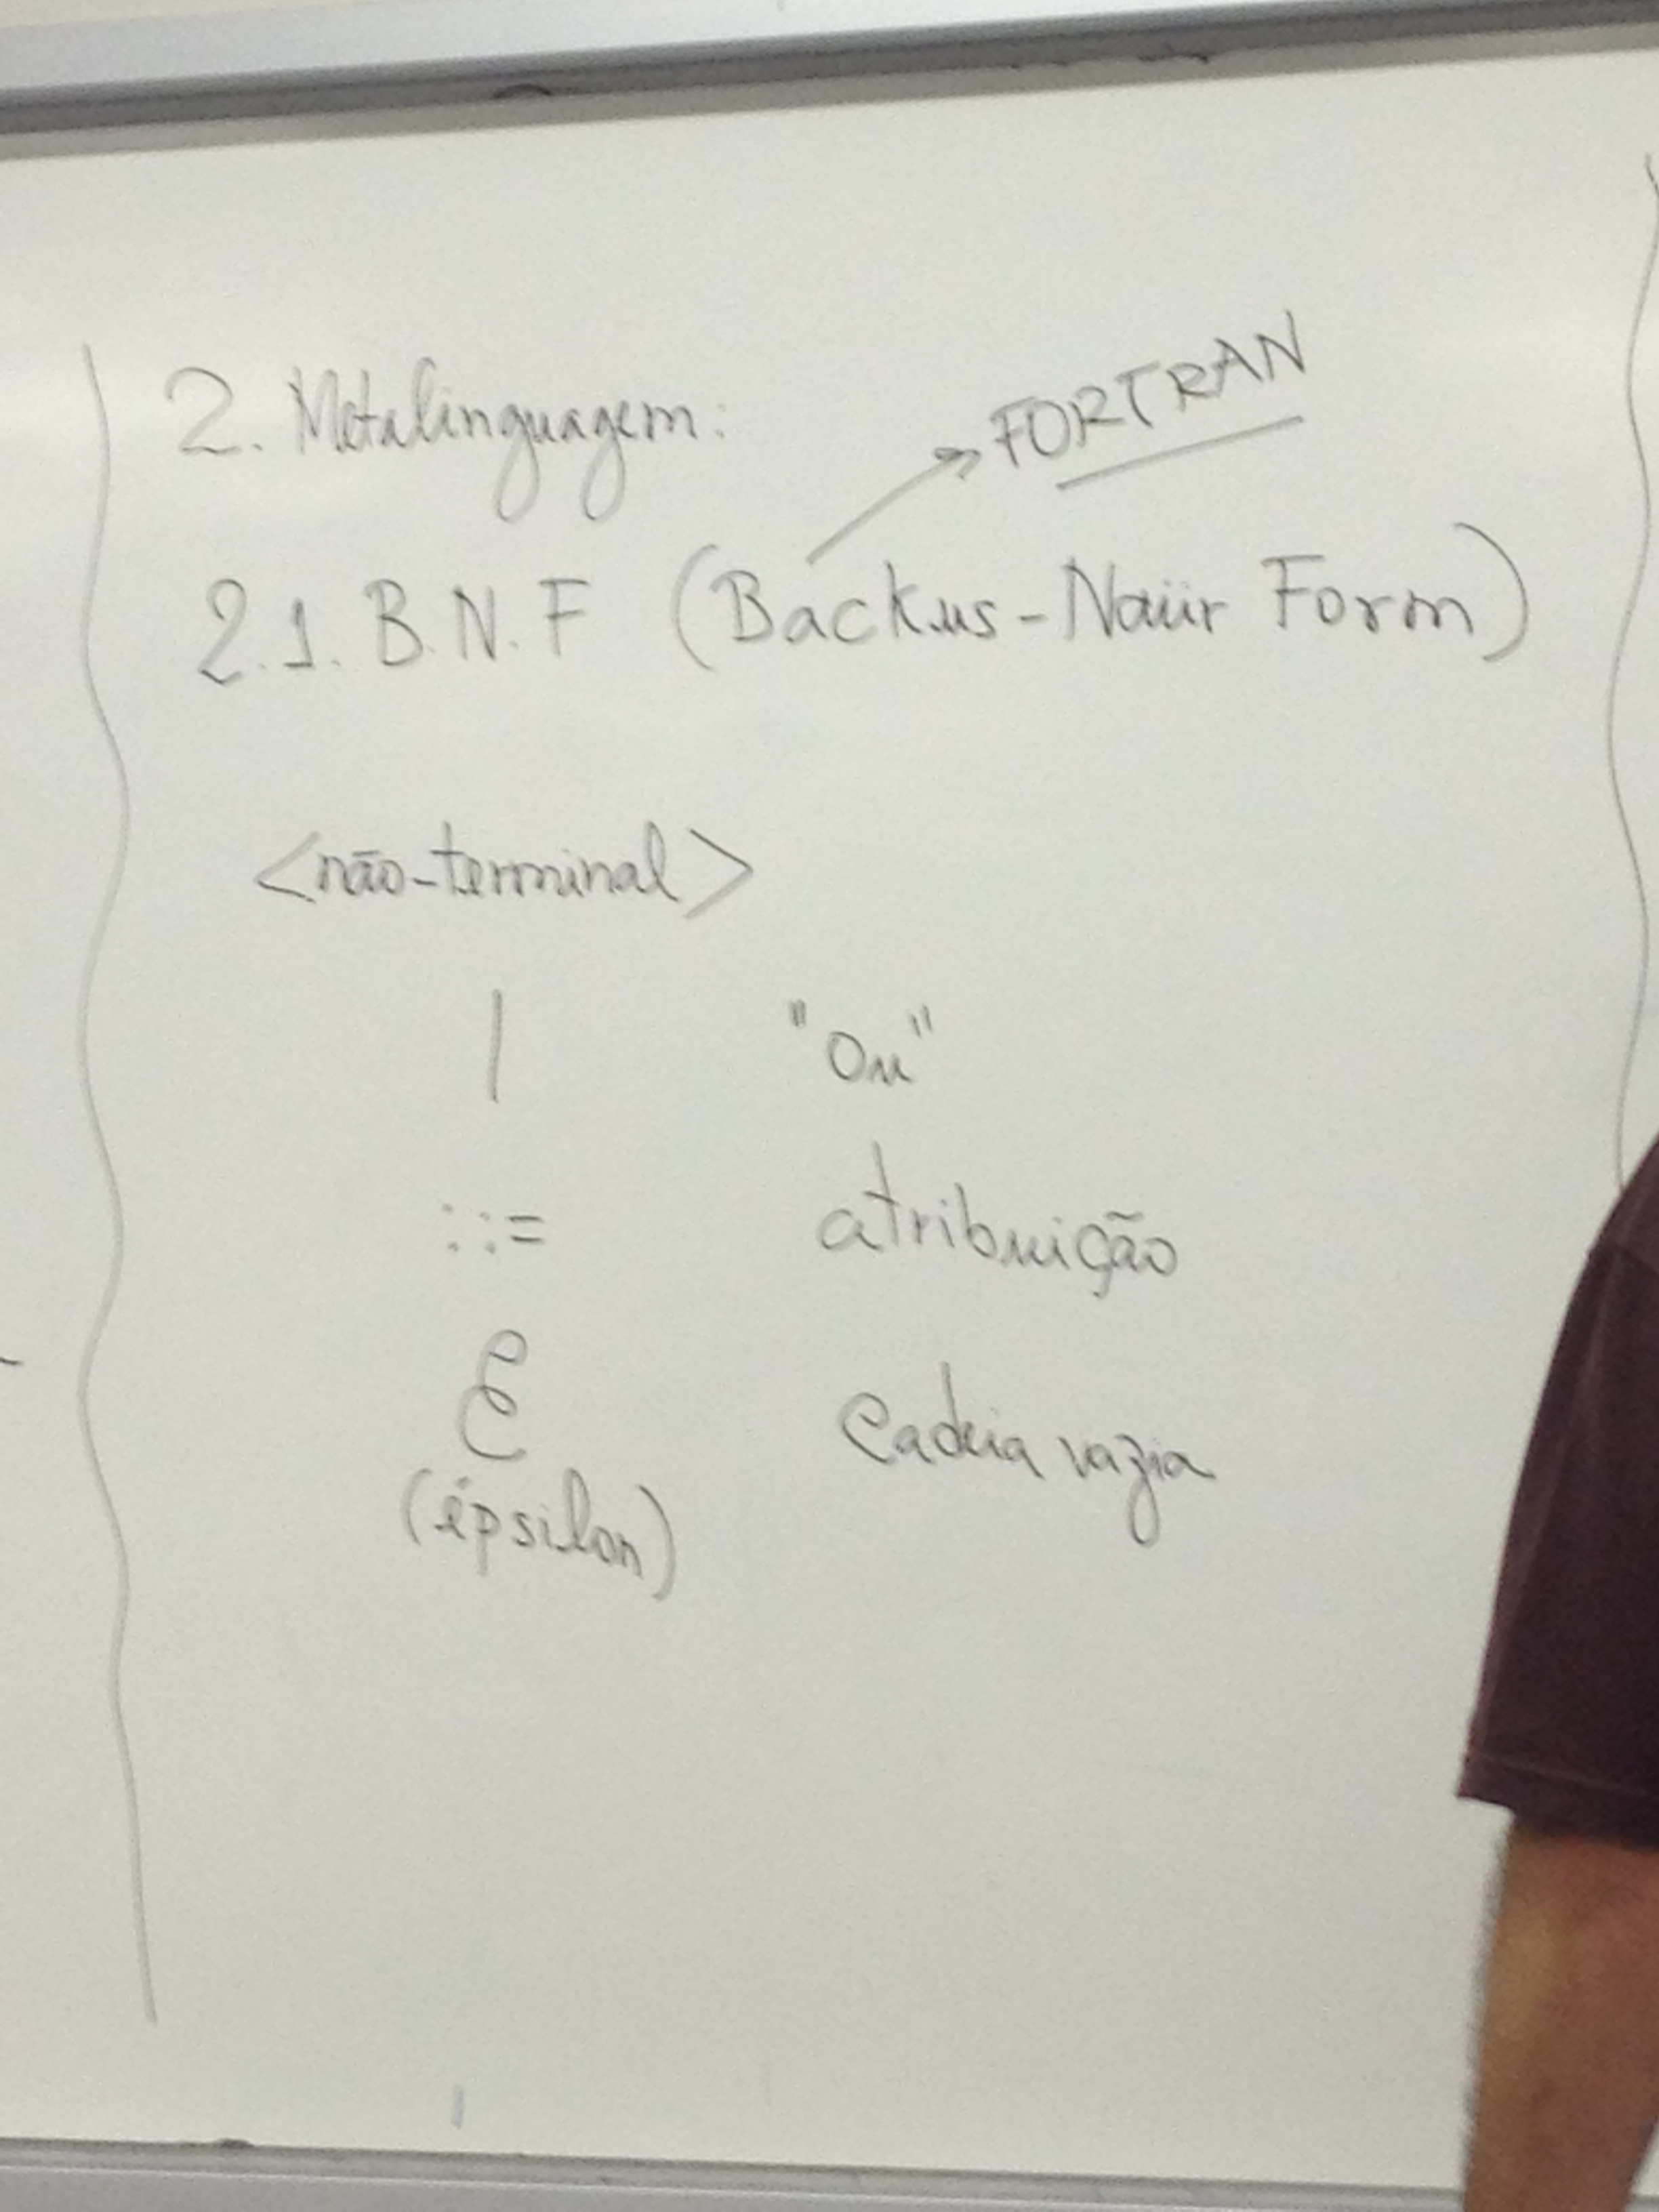 2. Metalinguagem:
FORTRAN
2.1. B.N.F (Backus-Naür Form)
<não-terminal>
| "Ou"
::= atribuição
ε cadeia vazia
(épsilon)